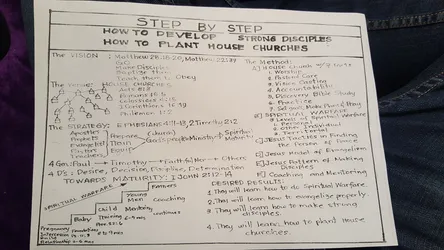 STEP BY STEP
HOW TO DEVELOP STRONG DISCIPLES
HOW TO PLANT HOUSE CHURCHES
The VISION: Matthew 28:18-20, Matthew 22:37
GO!
Make Disciples
Baptize them
Teach them to Obey
HOUSE CHURCHES
Acts 8:1-8
Romans 16:5
Colossians 4:15
1 Corinthians 16:19
Philemon 1:2
The STRATEGY: EPHESIANS 4:11-13, 2 Timothy 2:2
Apostles
Prophets
Evangelist
Pastors
Teachers
Prepare
Train
Equip
(church)
God's people
Ministry
Spiritual
Maturity
4 Gen. Paul → Timothy → Faithful Men → Others
4 D's: Desire, Decision, Discipline, Determination
TOWARDS MATURITY: 1 John 2:12-14
SPIRITUAL WARFARE
Parents
Young
Men
Coaching
Mentoring
continues
Baby
Training
Pregnancy
The Method:
House Church
1. Worship
2. Pastoral Care
3. Vision Casting
4. Accountability
5. Discovery Bible Study
6. Practice
7. Set goals, Make Plans, Pray
SPIRITUAL WARFARE
Level of Spiritual Warfare
Personal
Other Individual
Territorial
Jesus Tactics in Finding
the Person of Peace
Jesus Model of Evangelism
Jesus Pattern of Making
Disciples
Coaching and Mentoring
DESIRED RESULTS:
1. They will learn how to do Spiritual Warfare.
2. They will learn how to evangelize properly.
3. They will learn how to make strong
disciples.
4. They will learn how to plant house
churches.